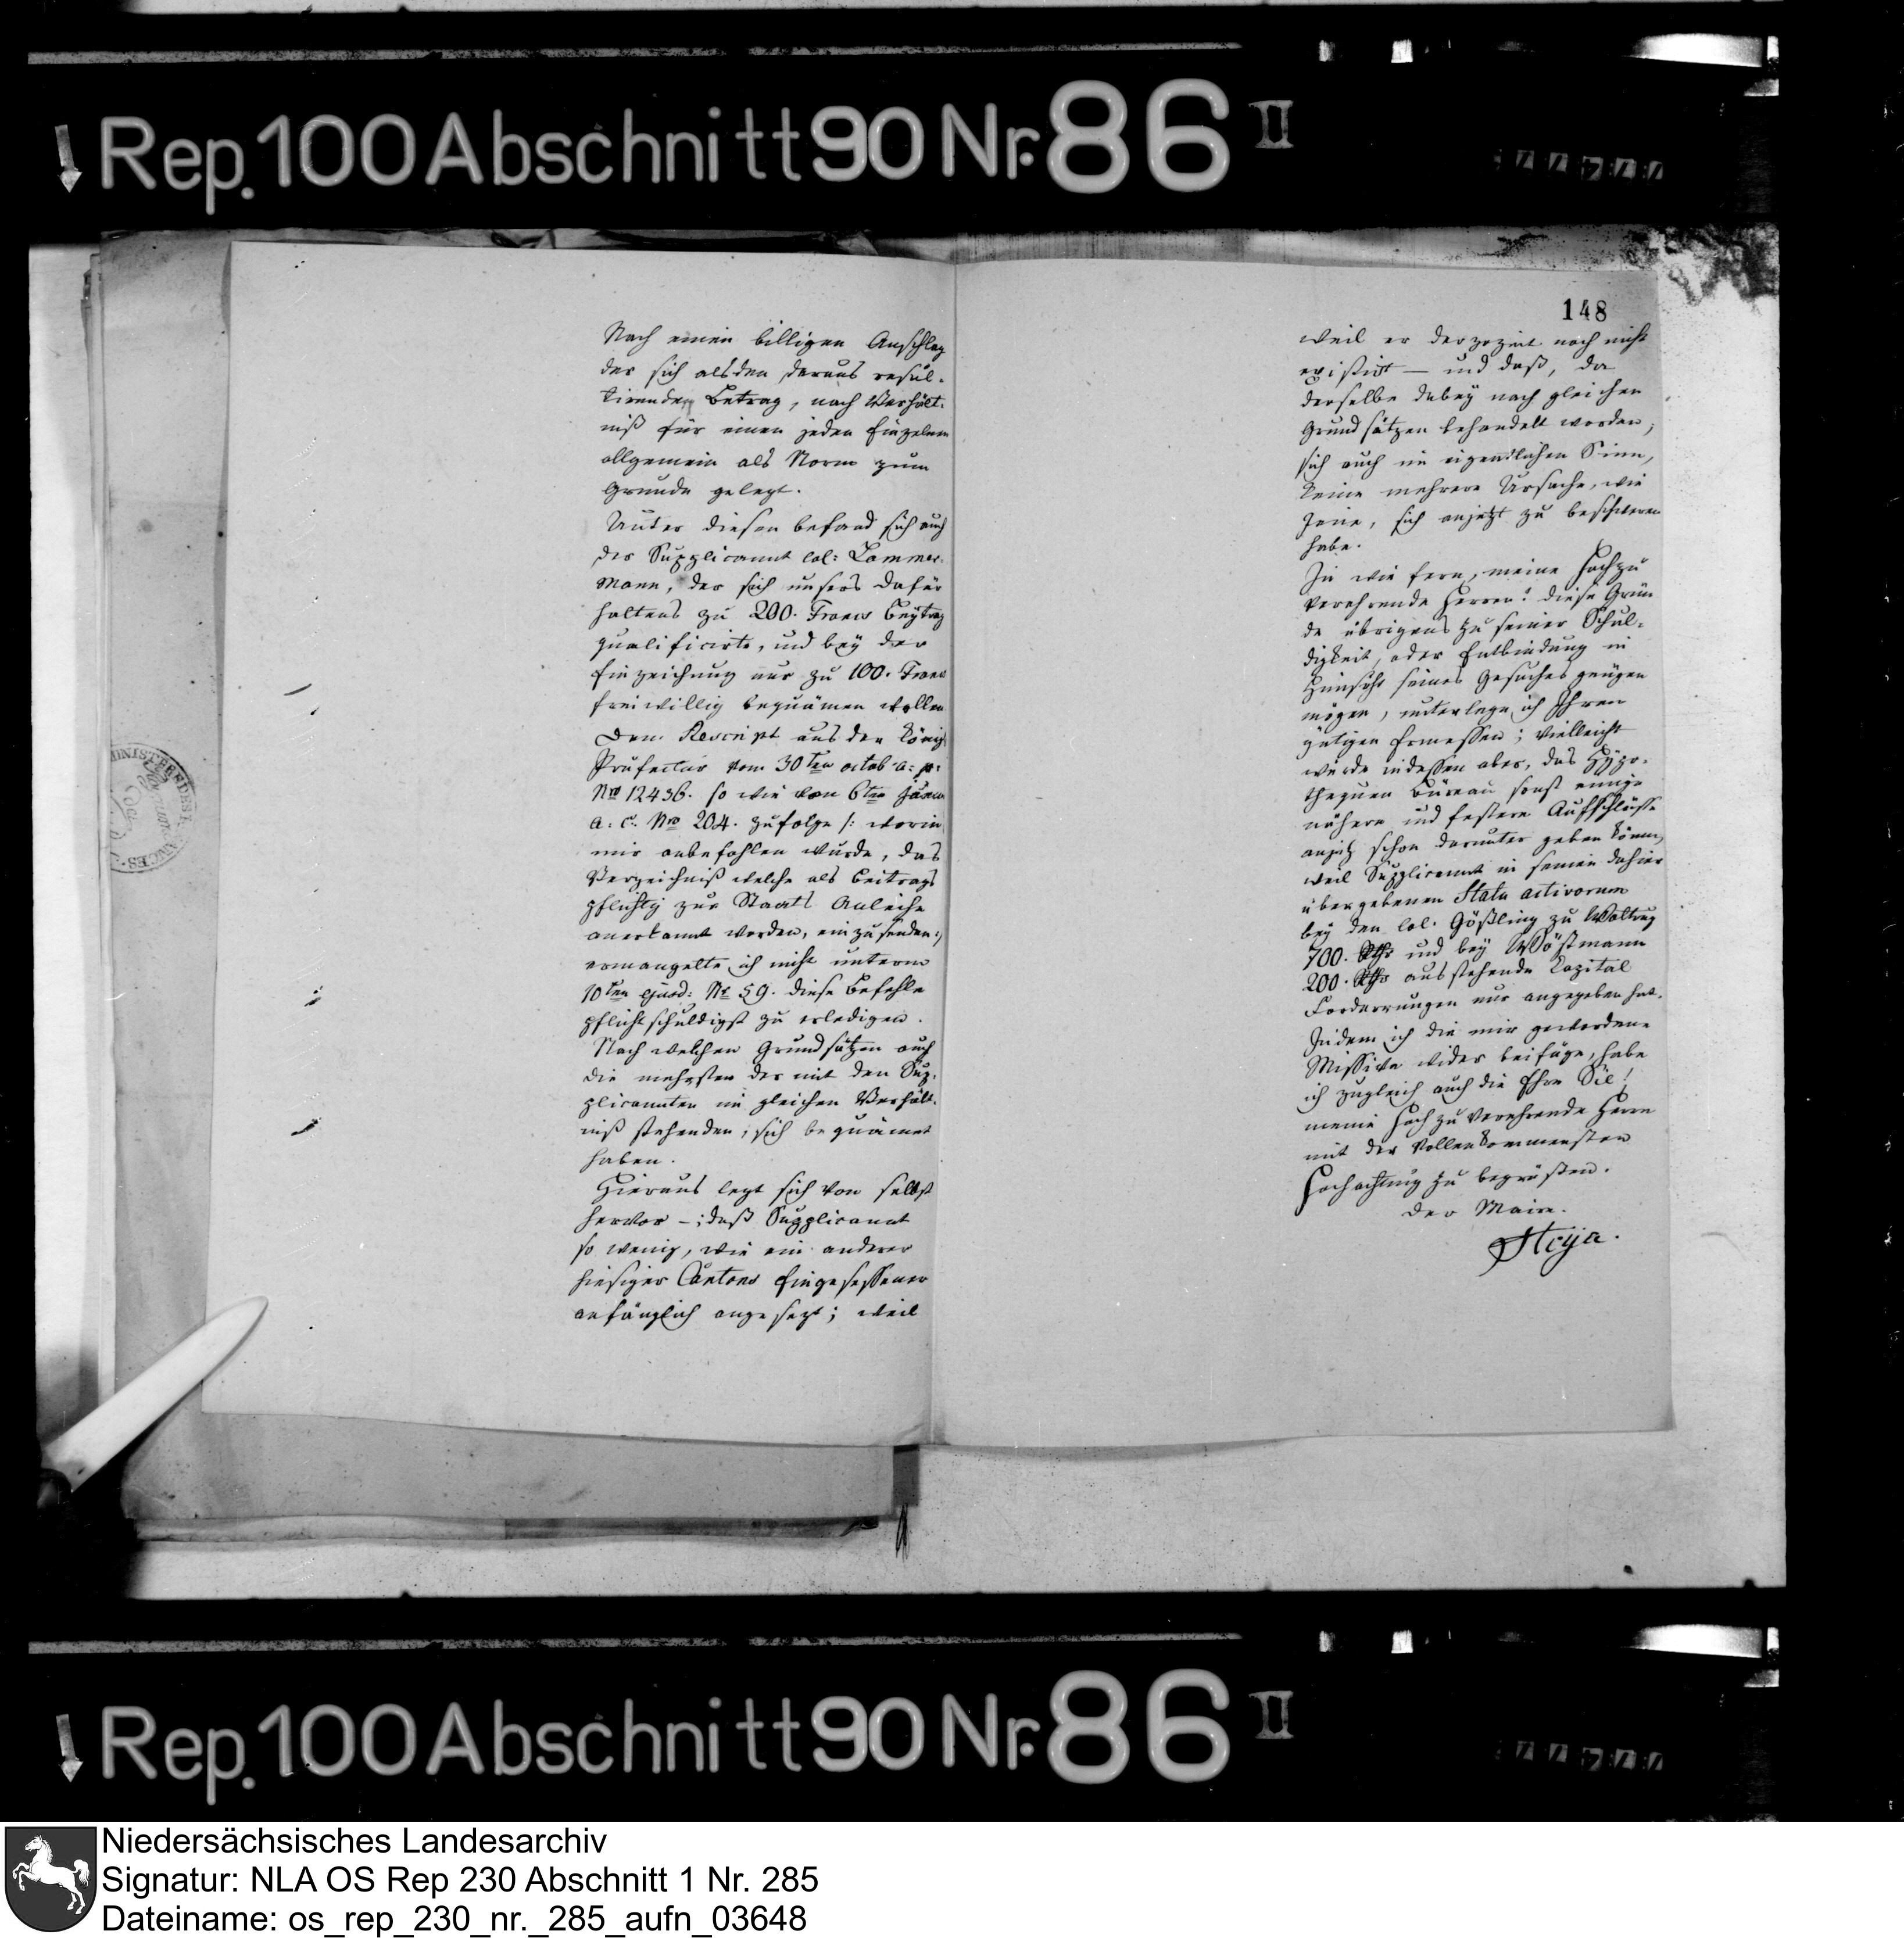 Rep. 100 Abschnitt 90 Nr. 86 II
Nach einen billigen Anschlag
der sich alsden daraus resul-
tirenden Betrag, nach Verhält-
niß für einen jeden Einzelnen
allgemein als Norm zum
Grunde gelegt.
Unter diesen befand sich auch
der Supplicannt Col: Lammer-
mann, der sich unsers dafür
haltens zu 200. Francs Beytrag
qualificirte, und bey der
Einzeichnung nur zu 100. Francs
freiwillig bequämen wollen
Dem Rescript aus der Königl
Präfectur vom 30ten octob a: p:
Nro 12436. so wie vom 6ten Januar
a. c. Nro 204. zufolge /: worin
mir anbefohlen wurde, das
Verzeichniß welche als Beitrags
pflichtig zur Staats Anleihe
anerkannt worden, einzusenden :/
ermangelte ich nicht unterm
10ten ejusd: Nr 59. diese Befehle
pflichtschuldigst zu erledigen.
Nach welchen Grundsätzen auch
die mehrsten der mit den Sup-
plicannten in gleichen Verhält-
niß stehenden, sich bequämet
haben.
Hieraus legt sich von selbst
hervor –; daß Supplicannt
so wenig, wie ein anderer
hiesiger Cantons Eingesessener
anfänglich angesezt; weil
148
weil er derzozeit noch nicht
existirt — und daß, da
derselbe dabey nach gleichen
Grundsätzen behandelt worden,
sich auch im eigendlichen Sinn,
keine mehrere Ursache, wie
Jene, sich anjetzt zu beschweren
habe.
In wie fern, meine Hochzu
verehrende Herren! diese Grün
de übrigens zu seiner Schul-
digkeit, oder Entbindung in
Hinsicht seines Gesuches genügen
mögen, unterlege ich Ihren
gütigen Ermessen; vielleicht
würde indessen aber, das Hypo-
thequen Büreau sonst einige
nähere und festere Aufschlüsse
anjetz schon darunter geben können,
weil Supplicannt in seinen dahier
übergebenen Statu activorum
bey den Col. Gößling zu Woltrup
700. Rthr und bey Wöstmann
200. Rthr ausstehende Capital
Forderrungen nur angegeben hat.
Indem ich die mir gewordene
Missive wider beifüge, habe
ich zugleich auch die Ehre Sie!
meine Hoch zu verehrende Herrn
mit der Vollenkommensten
Hochachtung zu begrüßen.
Der Maire.
Heye.
Rep. 100 Abschnitt 90 Nr. 86 II
Niedersächsisches Landesarchiv
Signatur: NLA OS Rep 230 Abschnitt 1 Nr. 285
Dateiname: os_rep_230_nr._285_aufn_03648